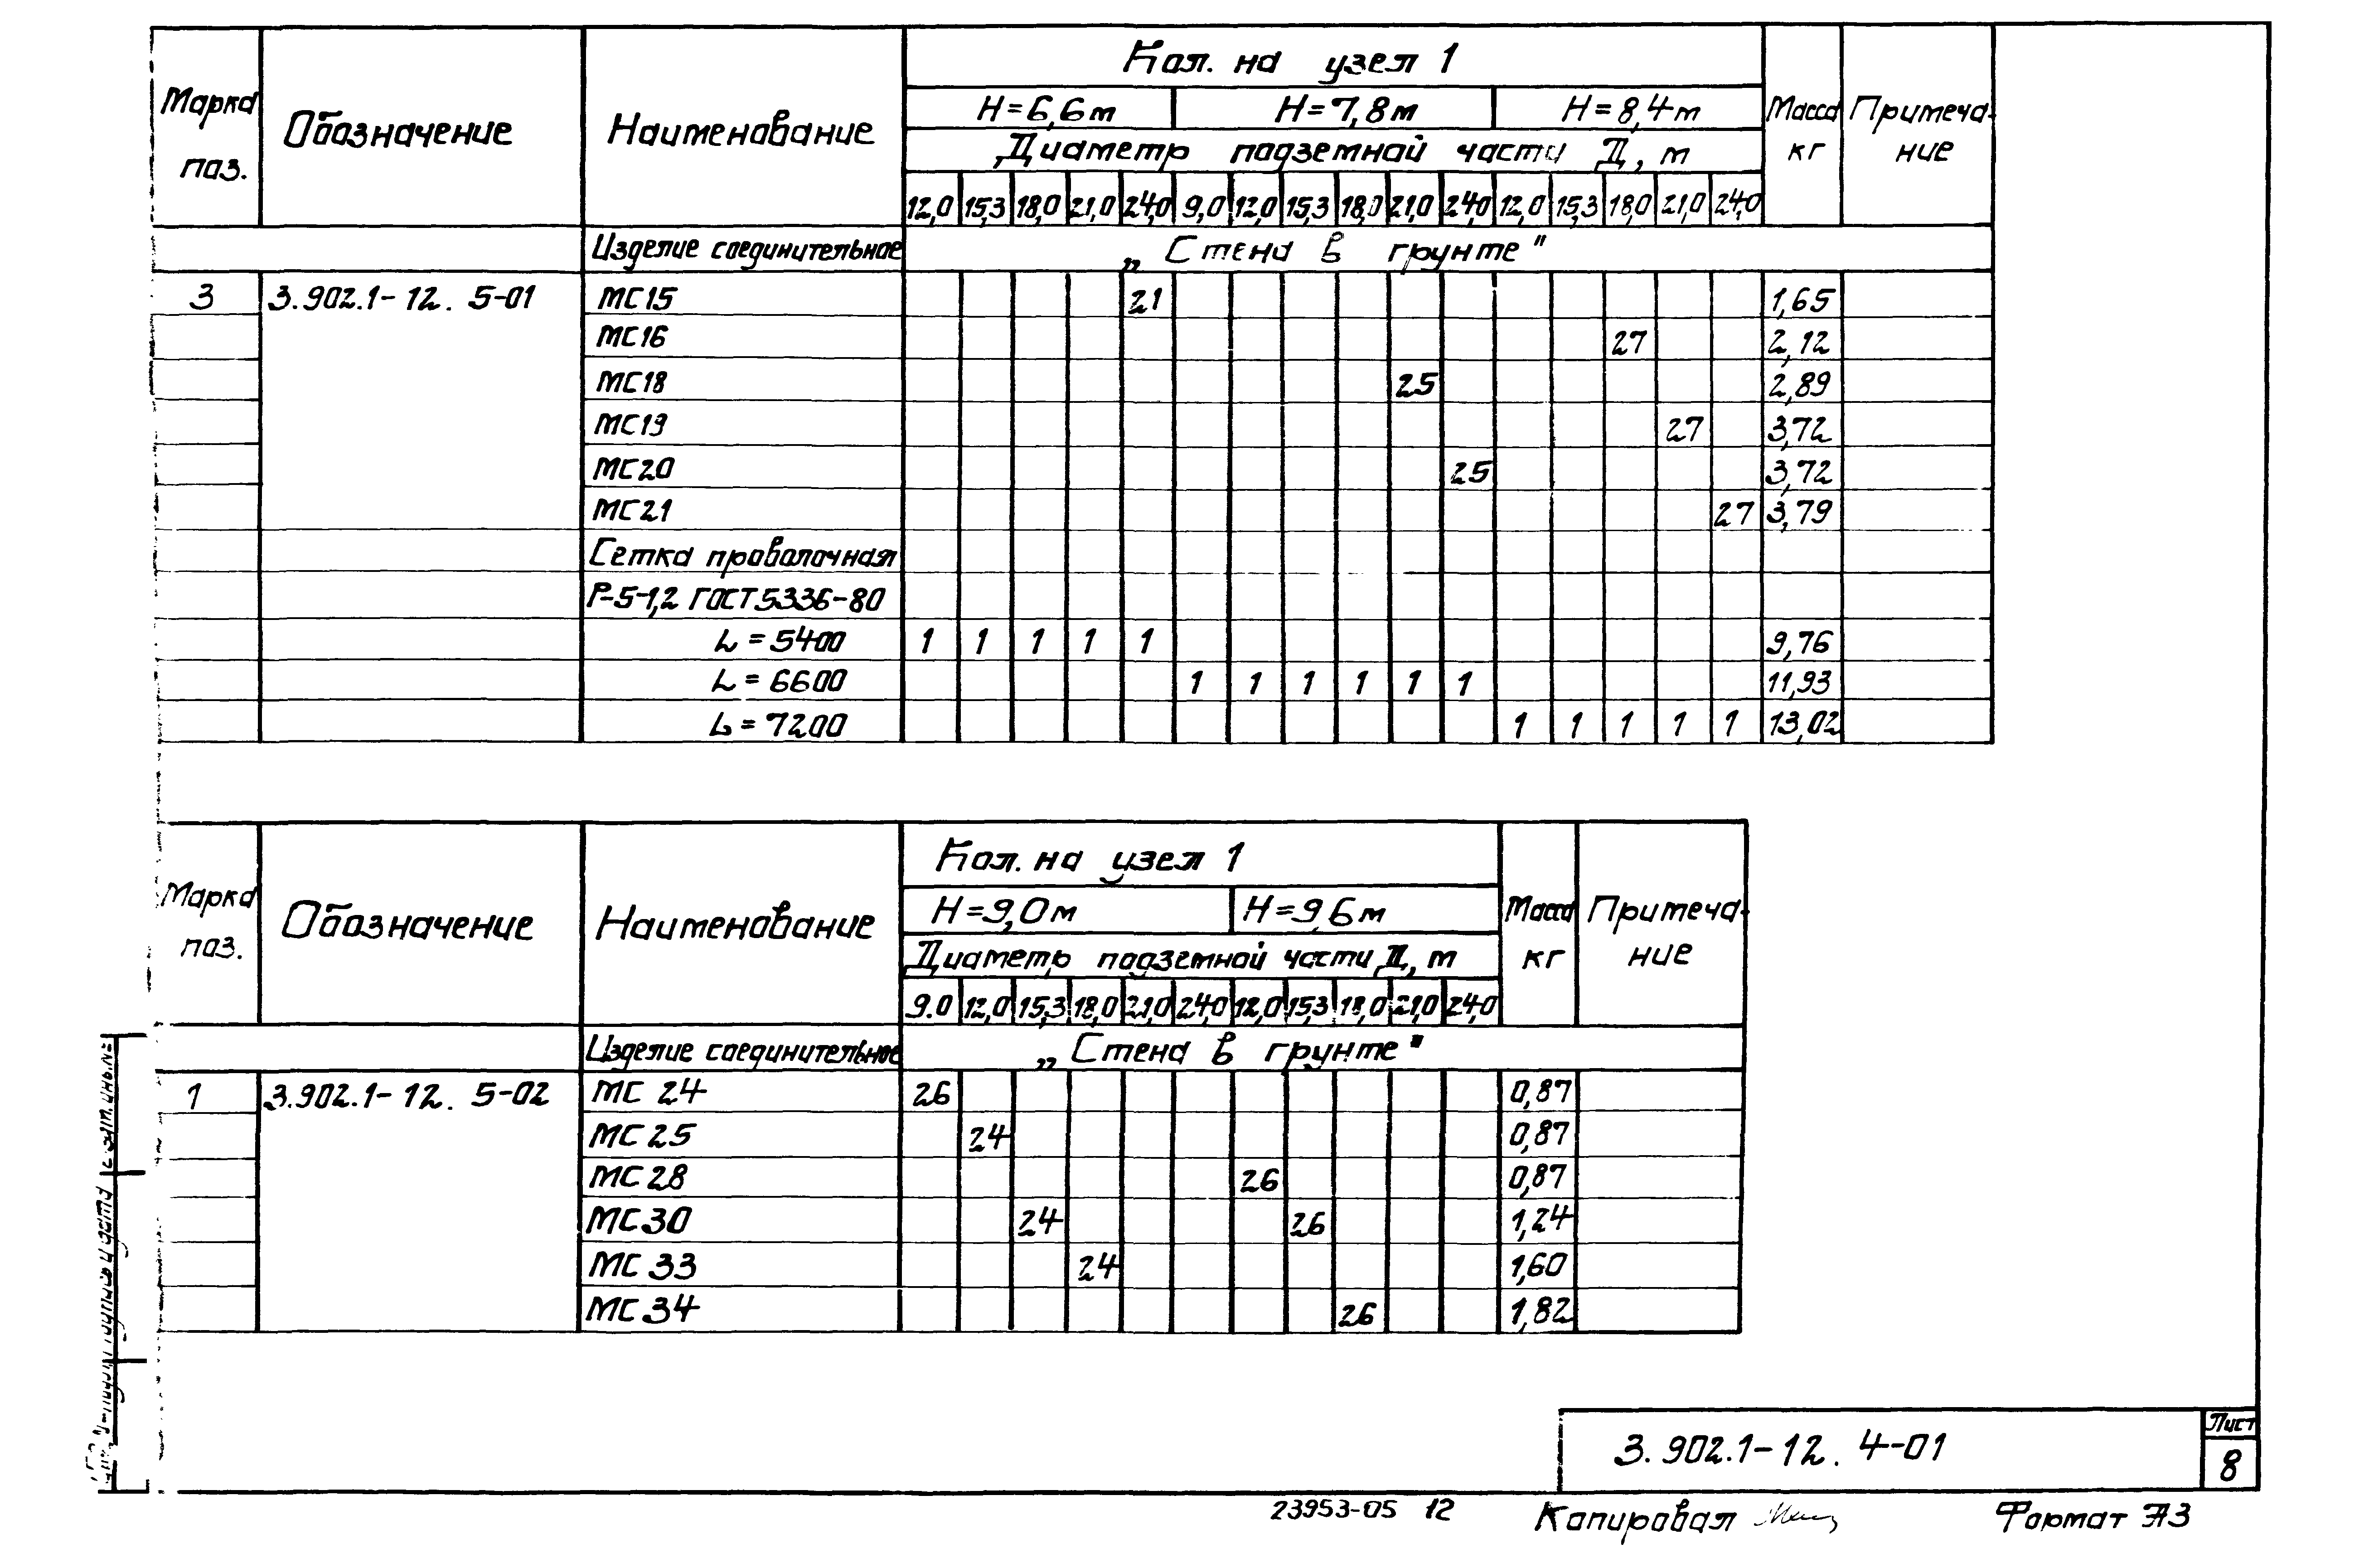 Марка поз. Обозначение Наименование Кол. на узел 1 Масса кг Примеча-ние
H=6,6м H=7,8м H=8,4м
Диаметр подземной части Д, м
12,0 15,3 18,0 21,0 24,0 9,0 12,0 15,3 18,0 21,0 24,0 12,0 15,3 18,0 21,0 24,0
Изделие соединительное „Стена в грунте"
3 3.902.1-12. 5-01 МС15 21 1,65
МС16 27 2,12
МС18 25 2,89
МС19 27 3,72
МС20 25 3,72
МС21 27 3,79
Сетка проволочная
Р-5-1,2 ГОСТ 5336-80
L=5400 1 1 1 1 1 9,76
L=6600 1 1 1 1 1 1 11,93
L=7200 1 1 1 1 1 13,02
Марка поз. Обозначение Наименование Кол. на узел 1 Масса кг Примеча-ние
H=9,0м H=9,6м
Диаметр подземной части Д, м
9.0 12,0 15,3 18,0 21,0 24,0 12,0 15,3 18,0 21,0 24,0
Изделие соединительное „Стена в грунте"
1 3.902.1-12. 5-02 МС 24 26 0,87
МС 25 24 0,87
МС 28 26 0,87
МС 30 24 26 1,24
МС 33 24 1,60
МС 34 26 1,82
3.902.1-12. 4-01
Лист
8
23953-05 12
Копировал
Формат А3